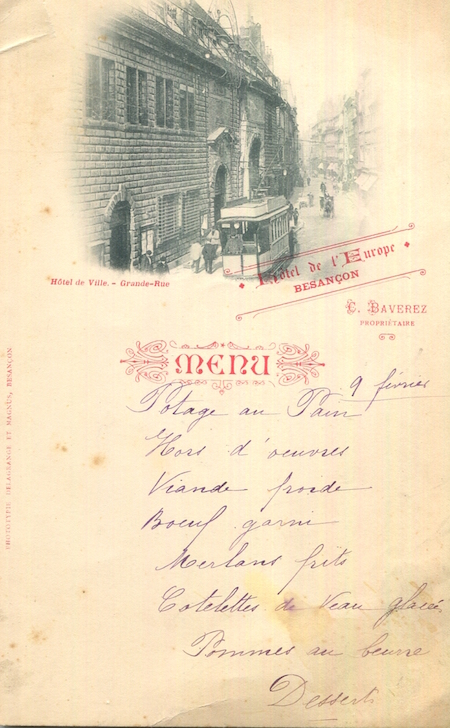 Hôtel de Ville. - Grande-Rue
Hôtel de l'Europe
BESANÇON
C. BAVEREZ
PROPRIÉTAIRE
MENU
9 février
Potage au Pain
Hors d'oeuvres
Viande froide
Boeuf garni
Merlans frits
Cotelettes de Veau glacées
Pommes au beurre
Desserts
PHOTOTYPIE DELAGRANGE ET MAGNUS, BESANÇON